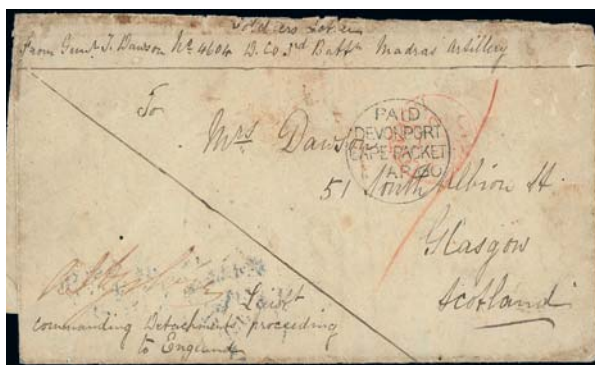 Soldiers Letter
From Gunr J. Dawson No 4604 B. Co 3rd Battn Madras Artillery
To
Mrs Dawson
PAID
DEVONPORT
CAPE PACKET
AP 30
51 South Albion St.
Glasgow
Scotland
Lieutt
commanding Detachments proceeding
to England